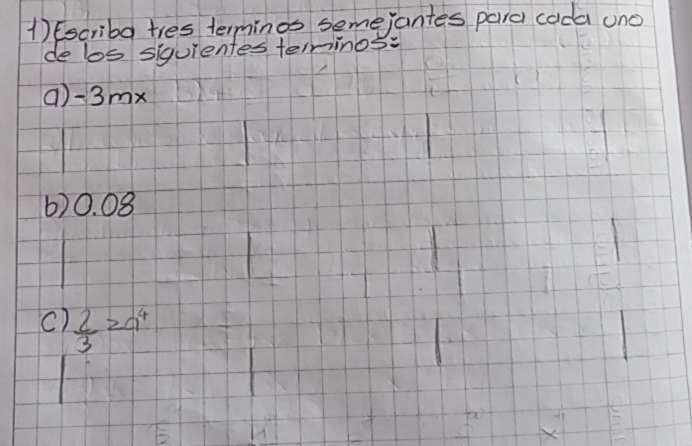 1) Escriba tres terminos semejantes para cada uno
de los siguientes terminos:
a) -3mx
b) 0.08
c) 2/3 za⁴